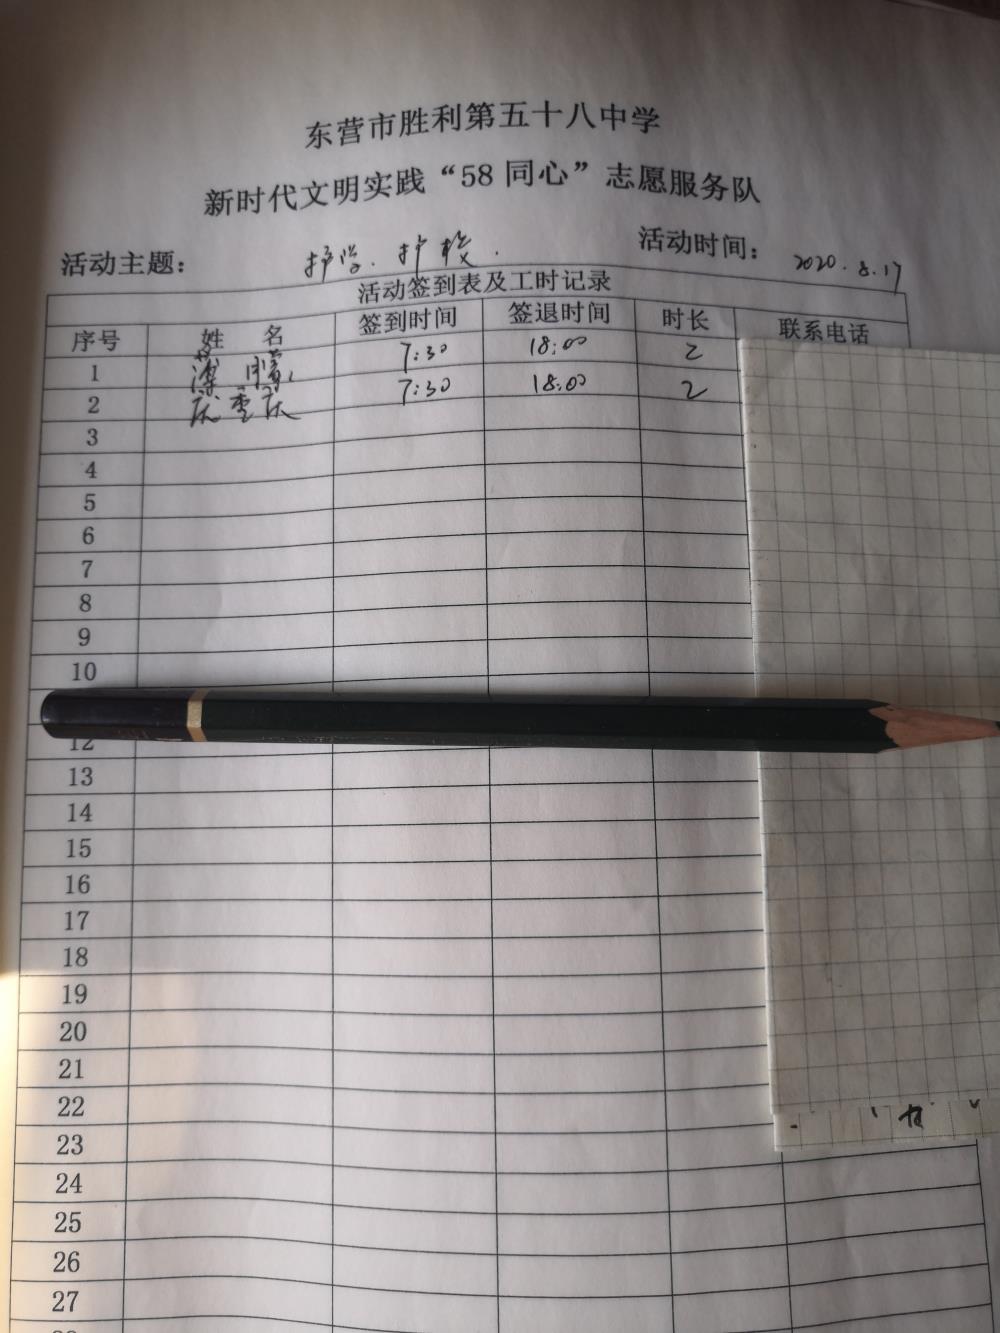 东营市胜利第五十八中学
新时代文明实践“58 同心”志愿服务队
活动主题： 护学．护校． 活动时间： 2020.8.17
活动签到表及工时记录
序号 姓 名 签到时间 签退时间 时长 联系电话
1 7:30 18:00 2
2 7:30 18:00 2
3
4
5
6
7
8
9
10
12
13
14
15
16
17
18
19
20
21
22
23
24
25
26
27